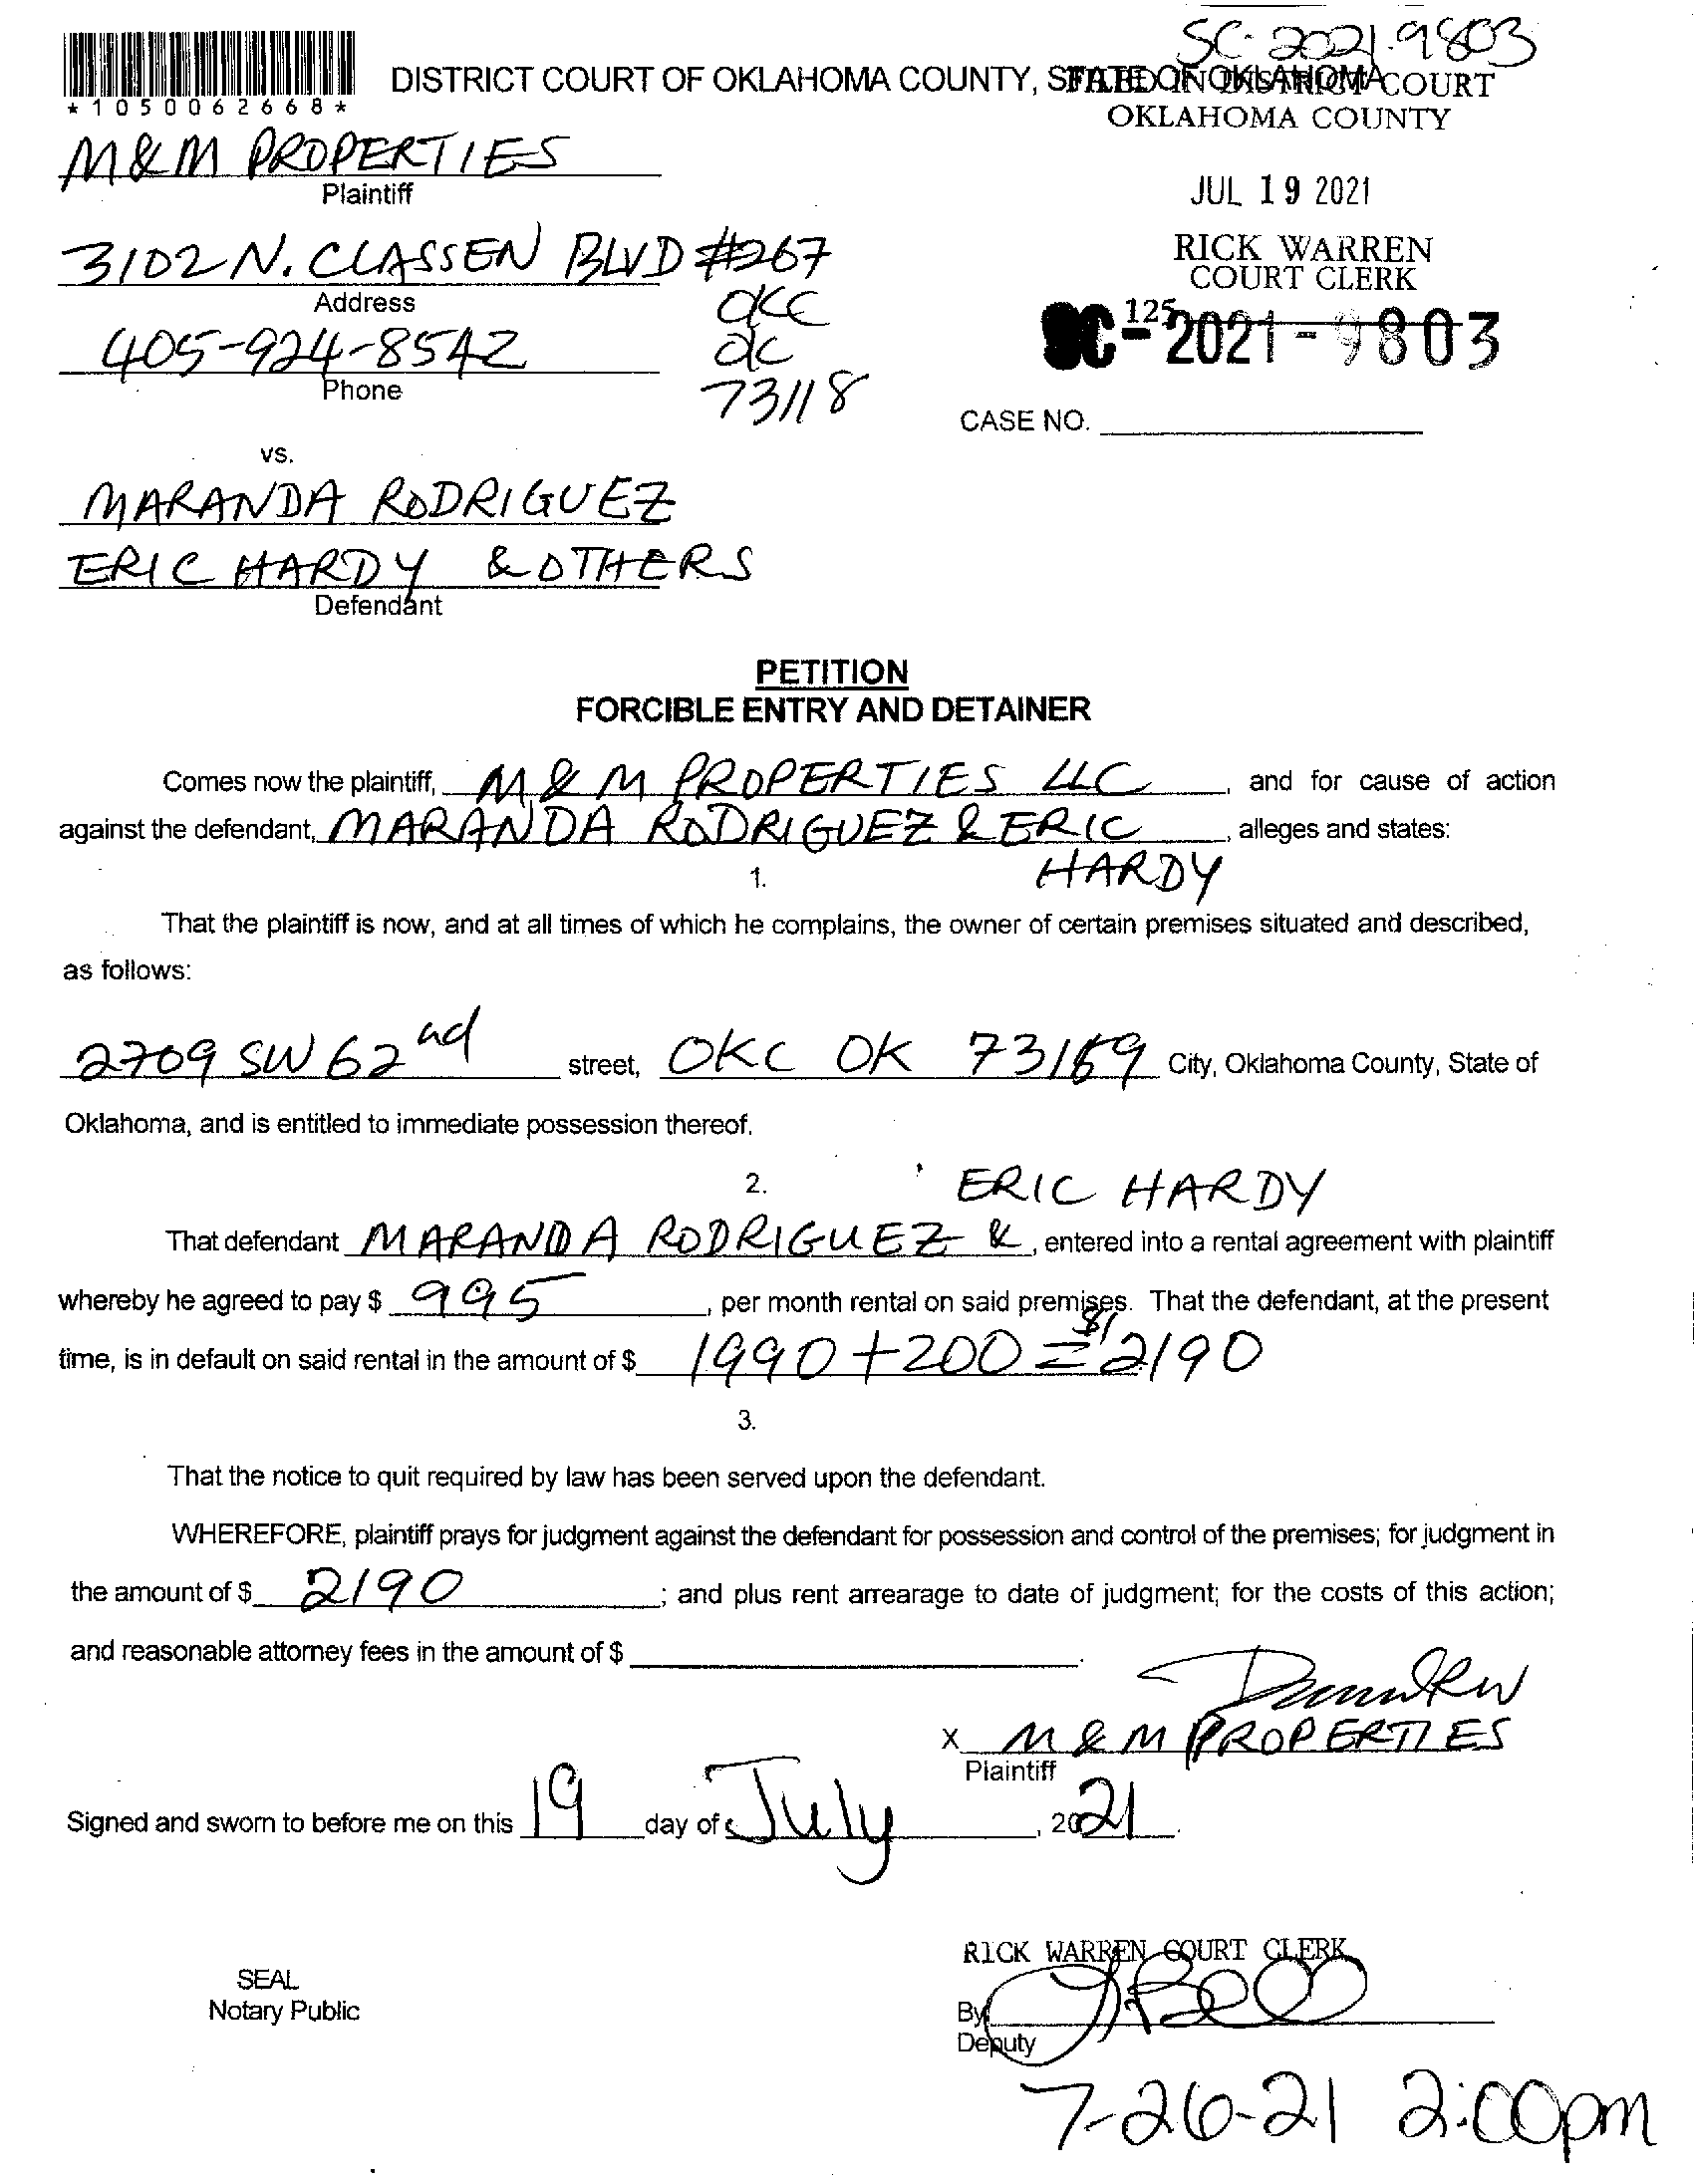 SC-2021-9803
DISTRICT COURT OF OKLAHOMA COUNTY, STATE OF OKLAHOMA
FILED IN DISTRICT COURT
OKLAHOMA COUNTY
*1050062668*
M&M PROPERTIES
Plaintiff
JUL 19 2021
3102 N. CLASSEN BLVD #267
Address
OKC
RICK WARREN
COURT CLERK
405-924-8542
Phone
OK
73118
125
SC-2021-9803
CASE NO.
vs.
MARANDA RODRIGUEZ
ERIC HARDY & OTHERS
Defendant
PETITION
FORCIBLE ENTRY AND DETAINER
Comes now the plaintiff, M & M PROPERTIES LLC, and for cause of action
against the defendant, MARANDA RODRIGUEZ & ERIC, alleges and states:
HARDY
1.
That the plaintiff is now, and at all times of which he complains, the owner of certain premises situated and described,
as follows:
2709 SW 62nd street, OKC OK 73159 City, Oklahoma County, State of
Oklahoma, and is entitled to immediate possession thereof.
2.
ERIC HARDY
That defendant MARANDA RODRIGUEZ &, entered into a rental agreement with plaintiff
whereby he agreed to pay $ 995, per month rental on said premises. That the defendant, at the present
time, is in default on said rental in the amount of $ 1990 + 200 = $2190
3.
That the notice to quit required by law has been served upon the defendant.
WHEREFORE, plaintiff prays for judgment against the defendant for possession and control of the premises; for judgment in
the amount of $ 2190; and plus rent arrearage to date of judgment; for the costs of this action;
and reasonable attorney fees in the amount of $.
X M & M PROPERTIES
Plaintiff
Signed and sworn to before me on this 19 day of July, 2021.
RICK WARREN COURT CLERK
SEAL
Notary Public
By
Deputy
7-26-21 2:00pm